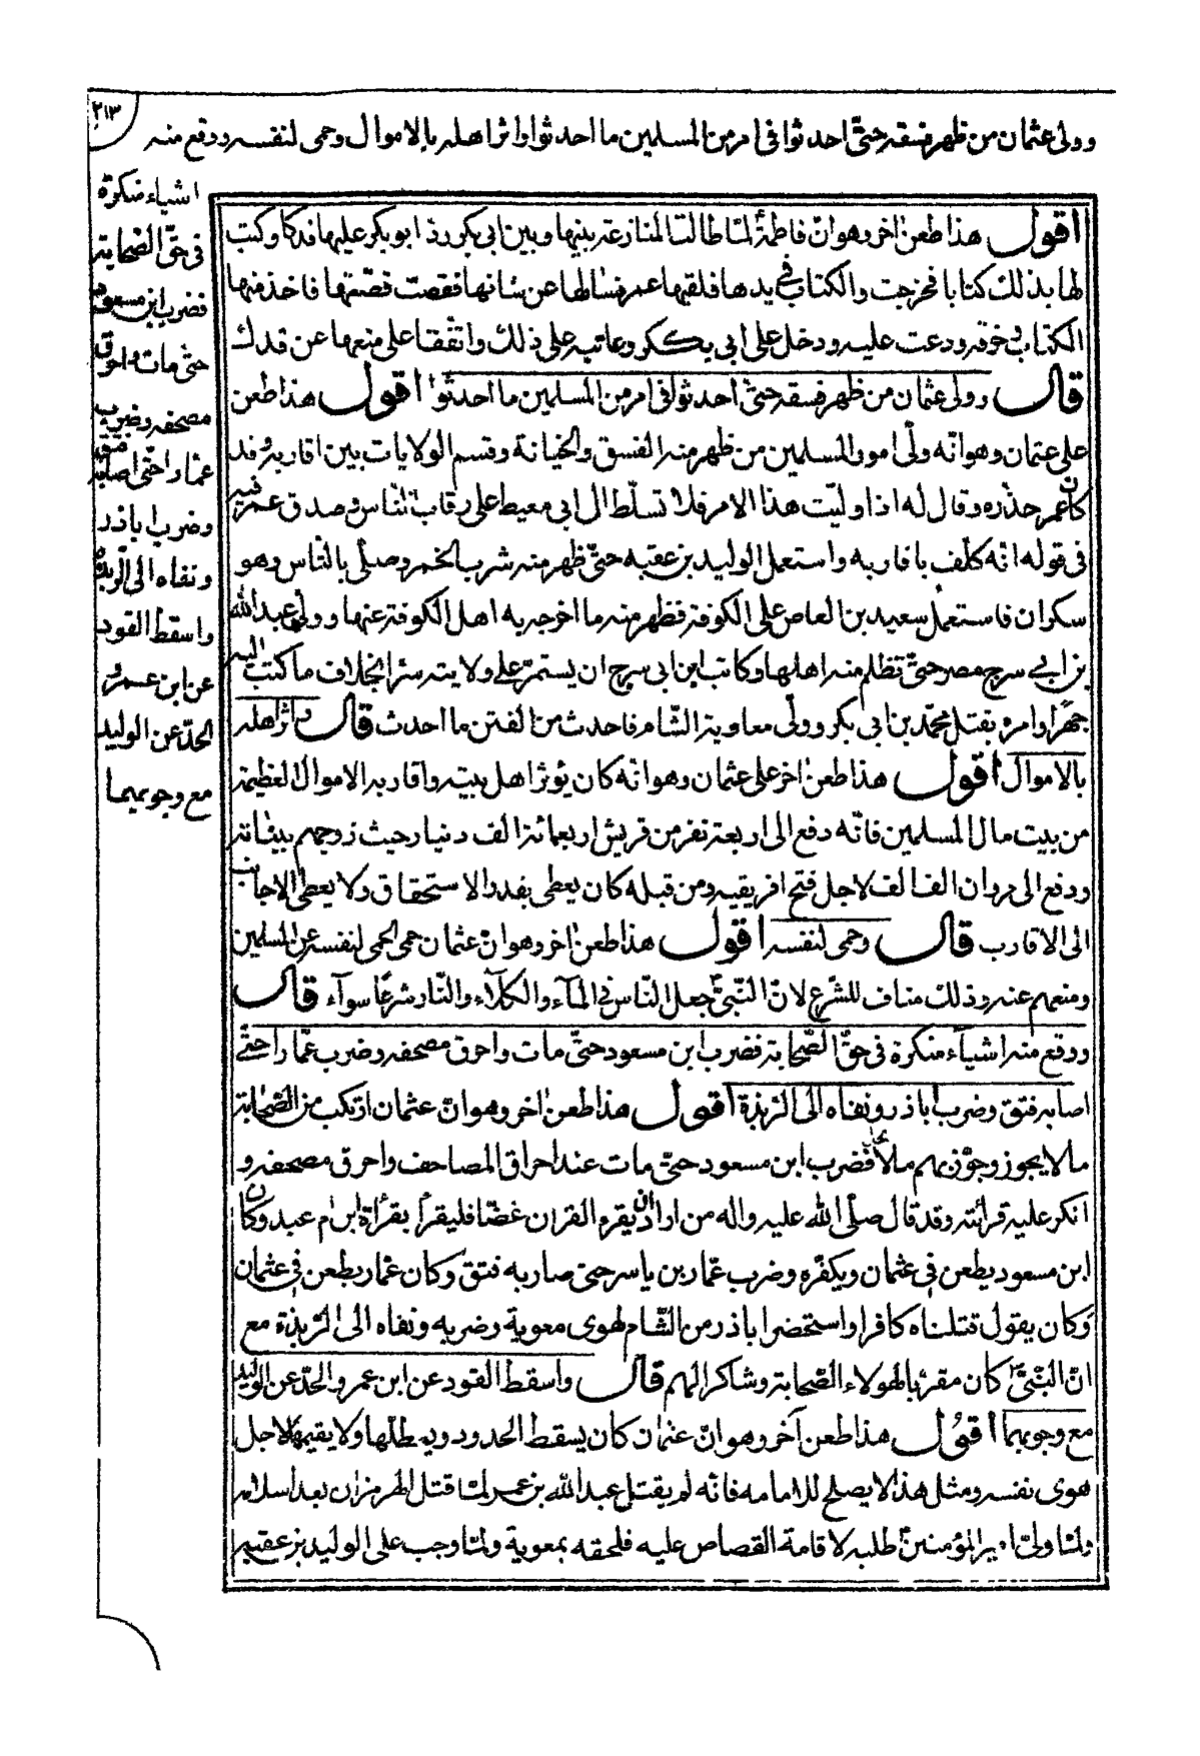 ٢١٣
وولى عثمان من ظهر فسقه حتى احدثوا فى امر من المسلمين ما احدثوا واثر اهله بالاموال وحمى لنفسه ووقع منه
اشياء منكرة
فى حقّ الصّحابة
فضرب ابن مسعود
حتى مات واحرق
مصحفه وضرب
عمّارا حتّى اصابه فتق
وضرب اباذر
ونفاه الى الرّبذة
واسقط القود
عن ابن عمر و
الحدّ عن الوليد
مع وجوبهما
اقول هذا طعن اخر وهو انّ فاطمة لمّا طالت المنازعة بينها وبين ابى بكر رد ابو بكر عليها فدكا وكتب
لها بذلك كتابا فخرجت والكتاب فى يدها فلقيها عمر فسالها عن شانها فقصّت قصّتها فاخذ منها
الكتاب وخرقه ودعت عليه ودخل على ابى بكر وعاتبه على ذلك واتّفقا على منعها عن فدك
قال وولى عثمان من ظهر فسقه حتى احدثوا فى امر من المسلمين ما احدثوا اقول هذا طعن
على عثمان وهو انّه ولّى امور المسلمين من ظهر منه الفسق والخيانة وقسم الولايات بين اقاربه وقد
كان عمر حذّره وقال له اذا وليّت هذا الامر فلا تسلّط ال ابى معيط على رقاب النّاس وصدق عمر فيه
فى قوله انّه كلّف باقاربه واستعمل الوليد بن عقبه حتّى ظهر منه شرب الخمر وصلّى بالنّاس وهو
سكران فاستعمل سعيد بن العاص على الكوفة فظهر منه ما اخرجه به اهل الكوفة عنها وولى عبد الله
بن ابي سرح مصر حتّى تظلم منه اهلها وكاتب ابن ابى سرح ان يستمرّ على ولايته سرّا بخلاف ما كتب اليه
جهرا وامره بقتل محمّد بن ابى بكر وولّى معاوية الشّام فاحدث من الفتن ما احدث قال واثر اهله
بالاموال اقول هذا طعن اخر على عثمان وهو انّه كان يؤثر اهل بيته واقاربه الاموال العظيمة
من بيت مال المسلمين فانّه دفع الى اربعة نفر من قريش اربعمائة الف دنيار حيث زوجهم ببناته
ودفع الى مروان الف الف لاجل فتح افريقيه ومن قبله كان يعطى بقدر الاستحقاق ولا يعطى الاجانب
الى الاقارب قال وحمى لنفسه اقول هذا طعن اخر وهو انّ عثمان حمى الحمى لنفسه عن المسلمين
ومنعهم عنه وذلك مناف للشّرع لانّ النّبىّ جعل النّاس فى الماء والكلاء والنّار شرعًا سوآء قال
ووقع منه اشيآء منكرة فى حقّ الصّحابة فضرب ابن مسعود حتّى مات واحرق مصحفه وضرب عمّارا حتّى
اصابه فتق وضرب اباذر ونفاه الى الرّبذة اقول هذا طعن اخر وهو انّ عثمان ارتكب من الصّحابة
ما لا يجوز وجوّز بهم ما لا يحلّ فضرب ابن مسعود حتّى مات عند احراق المصاحف واحرق مصحفه و
انكر عليه قرائته وقد قال صلّى الله عليه واله من اراد ان يقرء القران غضّا فليقرأ بقرأة ابن ام عبد وكان
ابن مسعود يطعن فى عثمان ويكفّره وضرب عمّار بن ياسر حتى صار به فتق وكان عمّار يطعن فى عثمان
وكان يقول قتلناه كافرا واستحضر اباذر من الشّام لهوى معوية وضربه ونفاه الى الرّبذة مع
انّ النّبىّ كان مقرّبا لهولاء الصّحابة وشاكرا لهم قال واسقط القود عن ابن عمر والحدّ عن الوليد
مع وجوبهما اقول هذا طعن آخر وهو انّ عثمان كان يسقط الحدود ويبطلها ولا يقيمها لاجل
هوى نفسه ومثل هذا لا يصلح للامامه فانّه لم يقتل عبد الله بن عمر لمّا قتل الهرمزان بعد اسلامه
ولمّا ولىّ امير المؤمنين طلبه لاقامة القصاص عليه فلحقه بمعوية ولمّا وجب على الوليد بن عقبه